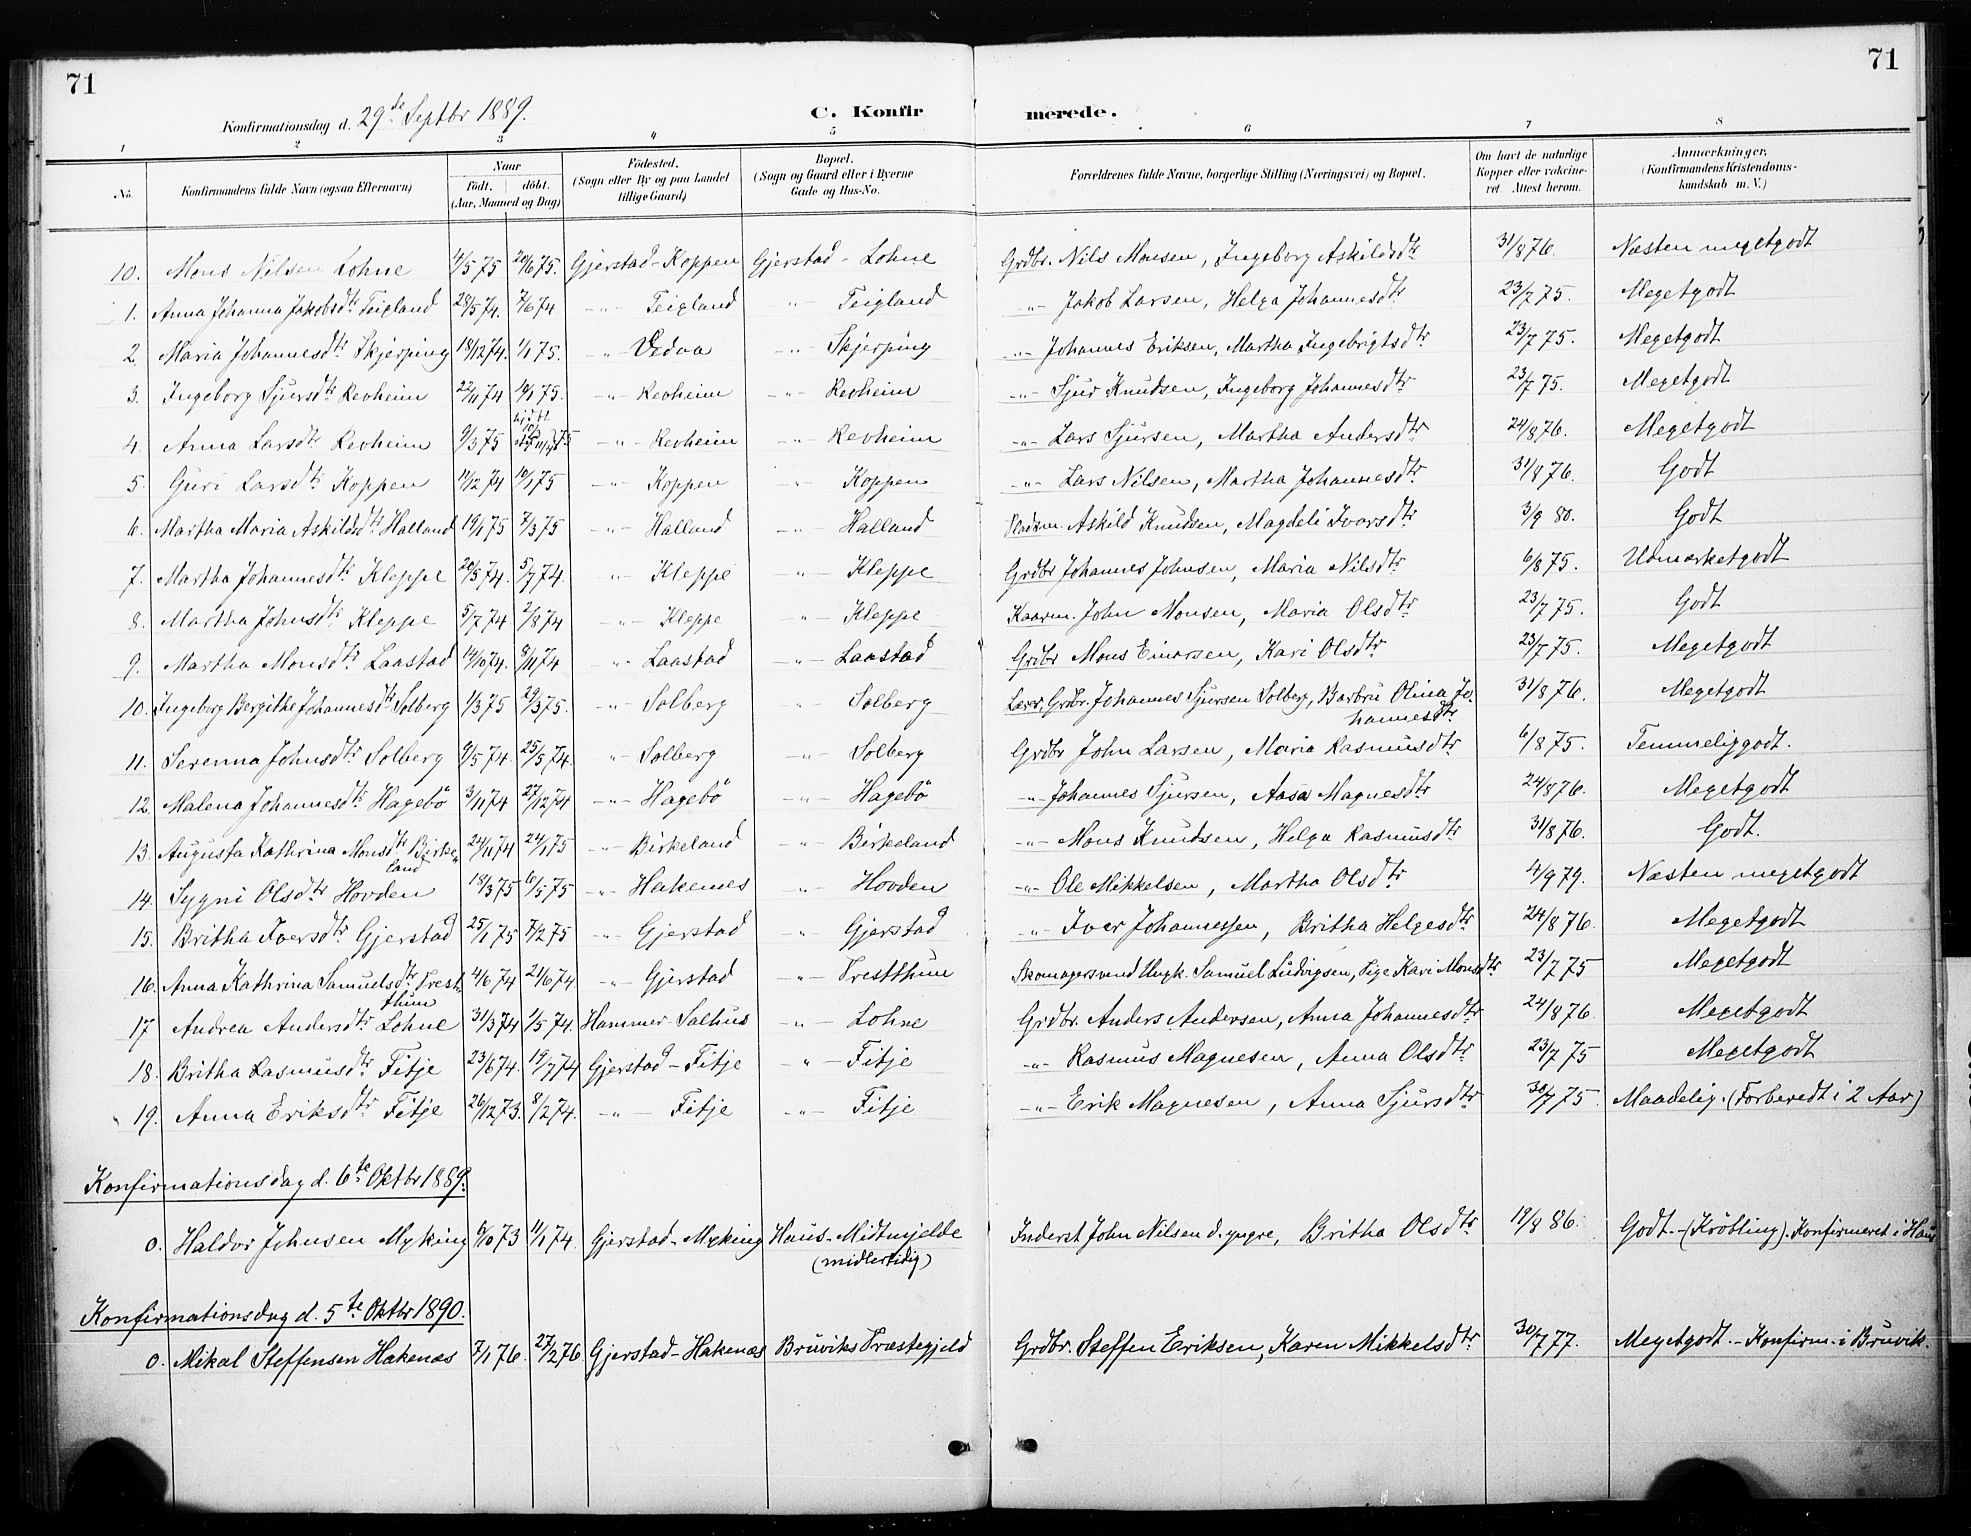 71
71
Konfirmationsdag d. 29de Septbr 1889.
C. Konfirmerede.
1 2 3 4 5 6 7 8
No. Konfirmandens fulde Navn (ogsaa Efternavn) Naar født. døbt. (Aar, Maaned og Dag) Fødested. (Sogn eller By og paa Landet tillige Gaard) Bopæl. (Sogn og Gaard eller i Byerne Gade og Hus-No. Forældrenes fulde Navne, borgerlige Stilling (Næringsvei) og Bopæl. Om havt de naturlige Kopper eller vakcineret. Attest herom. Anmærkninger, (Konfirmandens Kristendomskundskab m. V.)
10. Mons Nilsen Lohne 4/5 75 20/6 75. Gjerstad-Koppen Gjerstad - Lohne Grdbr. Nils Monsen, Ingeborg Askildsdtr 31/8 76. Næsten megetgodt
1. Anna Johanna Jakobsdtr Teigland 28/5 74. 7/6 74 -"- Teigland -"- Teigland -"- Jakob Larsen, Helga Johannesdtr 23/7 75. Megetgodt
2. Maria Johannesdtr Skjerping 18/12 74. 1/1 75. -"- Vedaa -"- Skjerping -"- Johannes Eriksen, Martha Ingebrigtsdtr 23/7 75. Megetgodt
3. Ingeborg Sjursdtr Revheim 22/11 74 10/1 75. -"- Revheim -"- Revheim -"- Sjur Knudsen, Ingeborg Johannesdtr 23/7 75. Megetgodt
4. Anna Larsdtr Revheim 9/3 75 -"- Revheim -"- Revheim -"- Lars Sjursen, Martha Andersdtr 24/8 76. Megetgodt
5. Guri Larsdtr Koppen 11/12 74 10/1 75 -"- Koppen -"- Koppen -"- Lars Nilsen, Martha Johannesdtr 31/8 76. Godt
6. Martha Maria Askildsdtr Halland 19/1 75 7/3 75 -"- Halland -"- Halland Askild Knudsen, Magdeli Ivarsdtr 3/9 80. Godt
7. Martha Johannesdtr Kleppe 20/5 74. 5/7 74. -"- Kleppe -"- Kleppe Grdbr Johannes Johnsen, Maria Nilsdtr 6/8 75. Udmærketgodt
8. Martha Johnsdtr Kleppe 5/7 74 2/8 74 -"- Kleppe -"- Kleppe Kaarm. John Monsen, Maria Olsdtr 23/7 75. Godt
9. Martha Monsdtr Laastad 14/10 74. 8/11 74 -"- Laastad -"- Laastad Grdbr Mons Einarsen, Kari Olsdtr 23/7 75. Megetgodt
10. Ingeborg Bergithe Johannesdtr Solberg 1/3 75 29/3 75. -"- Solberg -"- Solberg Lærer, Grdbr. Johannes Sjursen Solberg, Barbru Olina Jo- 31/8 76. Megetgodt
hannesdtr
11. Serenna Johnsdtr Solberg 9/5 74. 25/5 74. -"- Solberg -"- Solberg Grdbr John Larsen, Maria Rasmusdtr 6/8 75. Temmeliggodt.
12. Malena Johannesdtr Hagebö 3/11 74 27/12 74 -"- Hagebö -"- Hagebö -"- Johannes Sjursen, Aasa Magnesdtr 24/8 76. Megetgodt
13. Augusta Kathrina Monsdtr Birke- 24/11 74 24/1 75 -"- Birkeland -"- Birkeland -"- Mons Knudsen, Helga Rasmusdtr 31/8 76. Godt.
land
14. Sygni Olsdtr Hovden 18/3 75 6/5 75 -"- Hakenes -"- Hovden -"- Ole Mikkelsen, Martha Olsdtr 4/9 79. Næsten megetgodt
15. Britha Iversdtr Gjerstad 25/1 75 7/2 75 -"- Gjerstad -"- Gjerstad -"- Iver Johannessen, Britha Helgesdtr 24/8 76. Megetgodt
16. Anna Kathrina Samuelsdtr Trest- 4/6 74 21/6 74 -"- Gjerstad -"- Trestthun Skomagersvend Ungk. Samuel Ludvigsen, Pige Kari Monsdtr 23/7 75 Megetgodt
thun
17 Andrea Andersdtr Lohne 31/3 74 1/5 74. Hammer-Salhus -"- Lohne Grdbr. Anders Andersen, Anna Johannesdtr 24/8 76. Megetgodt
18. Britha Rasmusdtr Fitje 23/6 74. 19/7 74 Gjerstad - Fitje -"- Fitje -"- Rasmus Magnesen, Anna Olsdtr 23/7 75 Megetgodt
19. Anna Eriksdtr Fitje 26/12 73. 8/2 74. -"- Fitje -"- Fitje -"- Erik Magnesen, Anna Sjursdtr 30/7 75. Maadelig. (Forberedt i 2 Aar)
Konfirmationsdag d. 6te Oktbr 1889.
0. Haldor Johnsen Myking 6/10 73 11/1 74. Gjerstad-Myking Haus-Midtmjelde Inderst John Nilsen d. yngre, Britha Olsdtr 19/8 86. Godt - (Kröbling). Konfirmeret i Haus
(midlertidig)
Konfirmationsdag d. 5te Oktbr 1890.
0. Mikal Steffensen Hakenæs 7/1 76. 27/2 76 Gjerstad-Hakenæs Bruviks Præstegjeld Grdbr. Steffen Eriksen, Karen Mikkelsdtr 30/7 77. Megetgodt - Konfirm. i Bruvik.